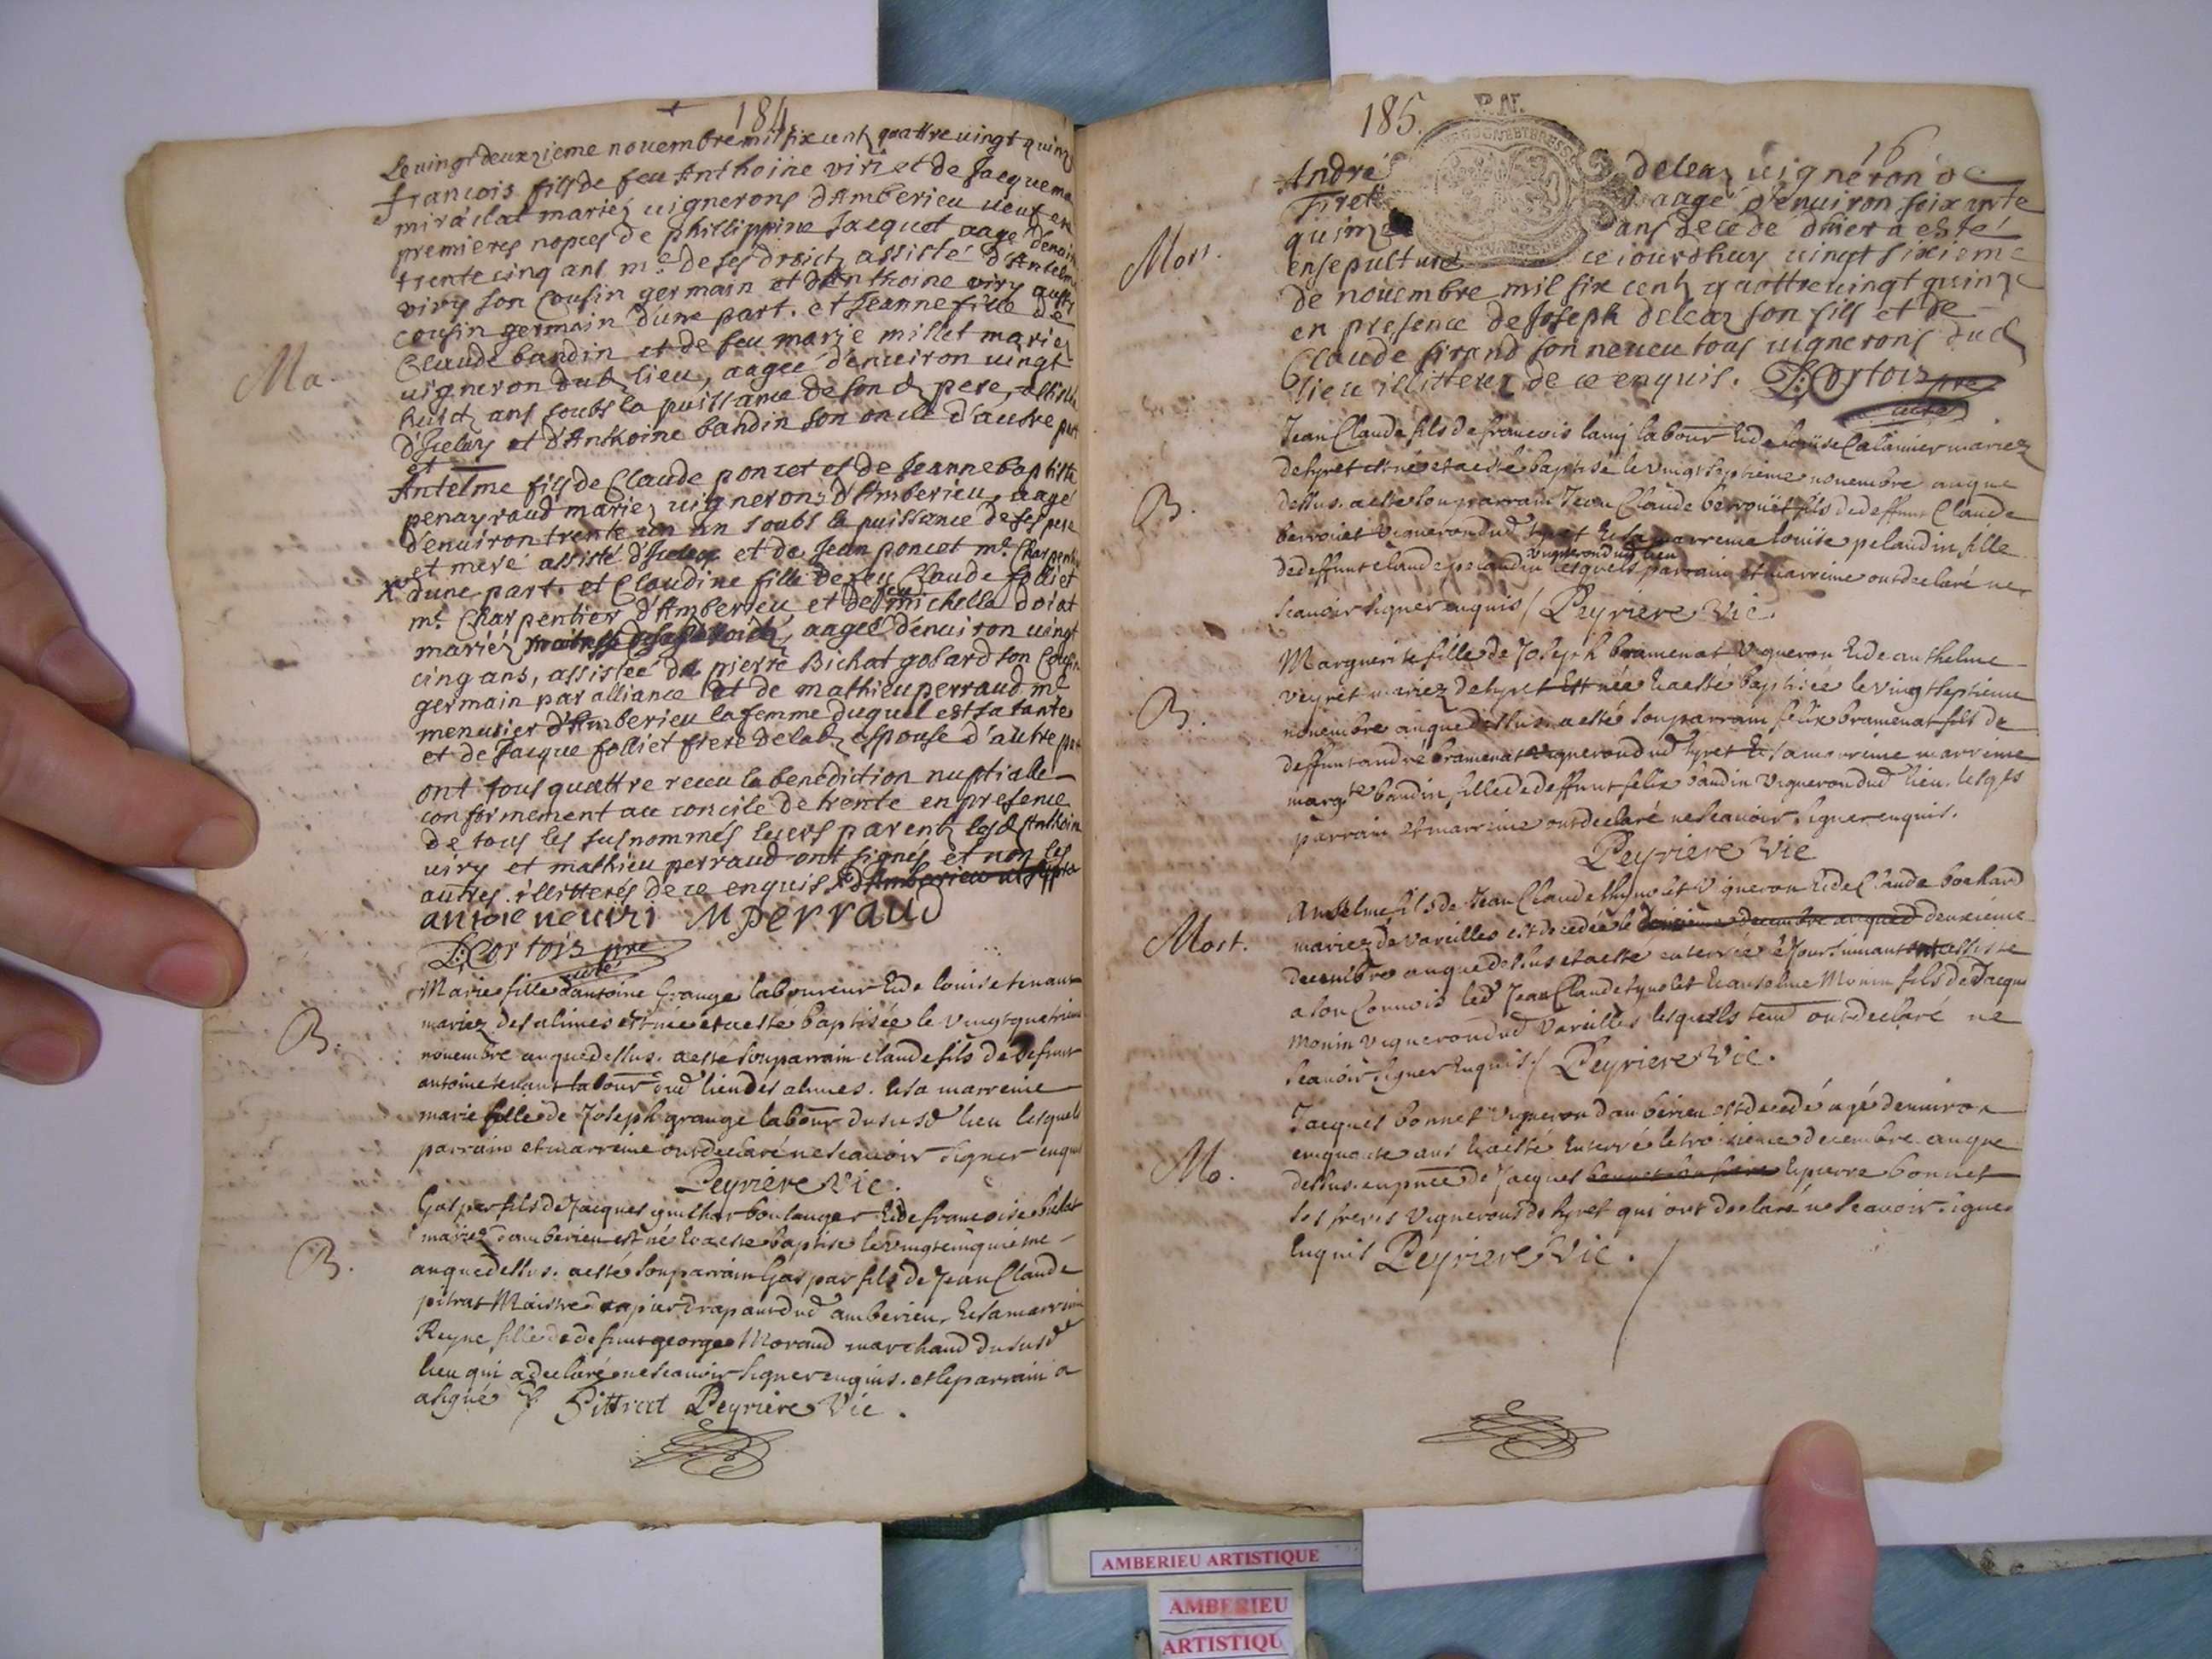 184
Le vingt deuxzieme novembre mil six cents quattre vingt quinz
francois fils de feu Anthoine viri et de Jacquema
miraillat mariez vignerons d'Amberieu veuf en
premieres nopces de phillippine Jacquet aagé d'envir
trente cinq ans m.e de ses droicts assisté d'Antelme
viry son Cousin germain et d'Anthoine viry aussi
cousin germain d'une part. et Jeanne fille de
Claude bandin et de feu marie millet mariez
vigneron dud lieu, aagée d'environ vingt
huict ans soubs la puissance de son d pere, assistée
et d'Anthoine bandin son oncle d'autre part
et
Ma.
Antelme fils de Claude poncet et de Jeanne baptiste
penayraud mariez vignerons d'Amberieu, aagé
d'environ trente un an soubs la puissance de ses pere
et mere assisté et de Jean poncet m.e Charpentier
X dune part. et Claudine fille de feu Claude folliet
m.e Charpentier d'Amberieu et de feu michella doiat
mariéz aagée d'environ vingt
cinq ans, assistée de pierre Bichat gobard son Cousin
germain par alliance et de mathieu perraud m.e
menusier d'Amberieu la femme duquel est sa tante
et de Jacque folliet frere de lad espouse d'autre part
ont tous quattre receu la benediction nuptialle
conformement au concile de trente en presence
de tous les susnommés leurs parents lesd Anthoine
viry et mathieu perraud ont signés et non les
autres illitterés de ce enquis
antoine uiri M perraud
L: Cortois pre
curé
Marie fille d'antoine Grange laboureur Et de louise tenant
mariez des alimes est née et a esté baptisée le vingt quatrieme
B.
novembre an que dessus. a esté son parrain claude fils de defunt
antoine tenant labour dud lieu des alimes. Et sa marreine
marie fille de Joseph grange labour du susd lieu lesquels
parrain et marreine ont declaré ne scavoir signer enquis
Peyriere Vic.
Gaspar fils de Jacques guilhar boulanger Et de francoise
mariez d'amberieu est né Et a esté baptisé le vingt cinquieme
B.
an que dessus. a esté son parrain Gaspar fils de Jean Claude
pitrat Maistre drapier drapant dud amberieu, Et sa marreine
Reyne fille de defunt george Morand marchand du susd
lieu qui a declaré ne scavoir signer enquis. et le parrain a
a signé G. Pittrat Peyriere Vic.
185.
16
André deleaz vigneron de
Tiret aagé d'environ soixante
quinze ans decedé d'hier a esté
Mort.
ensepulturé ce jourdhuy vingt sixieme
de novembre mil six cents quattre vingt quinze
en presence de Joseph deleaz son fils et de
Claude sirand son neveu tous vignerons dud
lieu illitterez de ce enquis. L: Cortois pre
curé
Jean Claude fils de francois lamy labour Et de louise mariez
de tyret est né et a esté baptisé le vingt septieme novembre an que
B.
dessus. a esté son parrain Jean Claude berrouet fils de deffunt Claude
berrouet vigneron dud tyret Et sa marreine louise pelandin fille
vigneron dud lieu
de deffunt claude pelandin lesquels parrain et marreine ont declaré ne
scavoir signer enquis / Peyriere Vic.
Marguerite fille de Joseph bramenat vigneron Et de anthelme
veyret mariez de tyret Est née Et a esté baptisée le vingt septieme
B.
novembre an que dessus. a esté son parrain felix bramenat fils de
deffunt andré bramenat vigneron dud tyret Et sa marreine marreine
marg.te bandin fille de deffunt felix bandin vigneron dud lieu. lesqls
parrain et marreine ont declaré ne scavoir signer enquis.
Peyriere Vic
Anthelme fils de Jean Claude thynolet Vigneron Et de Claude bochard
mariez de Vareilles est decedée le deuxieme
Mort.
decembre an que dessus et a esté enterrée le jour suivant
a son convois led Jean Claude tynolet Et anthelme Monin fils de Jacque
monin vigneron dud Vareilles lesquels temd ont declaré ne
scavoir signer Enquis / Peyriere Vic.
Jacques bonnet vigneron d'amberieu est decedé agé d'environ
cinquante ans Et a esté Enterré le troisieme decembre an que
Mo.
dessus. en pnce de Jacques bonnet son frere Et pierre bonnet
ses freres vignerons de tyret qui ont declaré ne scavoir signer
Enquis Peyriere Vic.
AMBERIEU ARTISTIQUE
AMBERIEU
ARTISTIQU